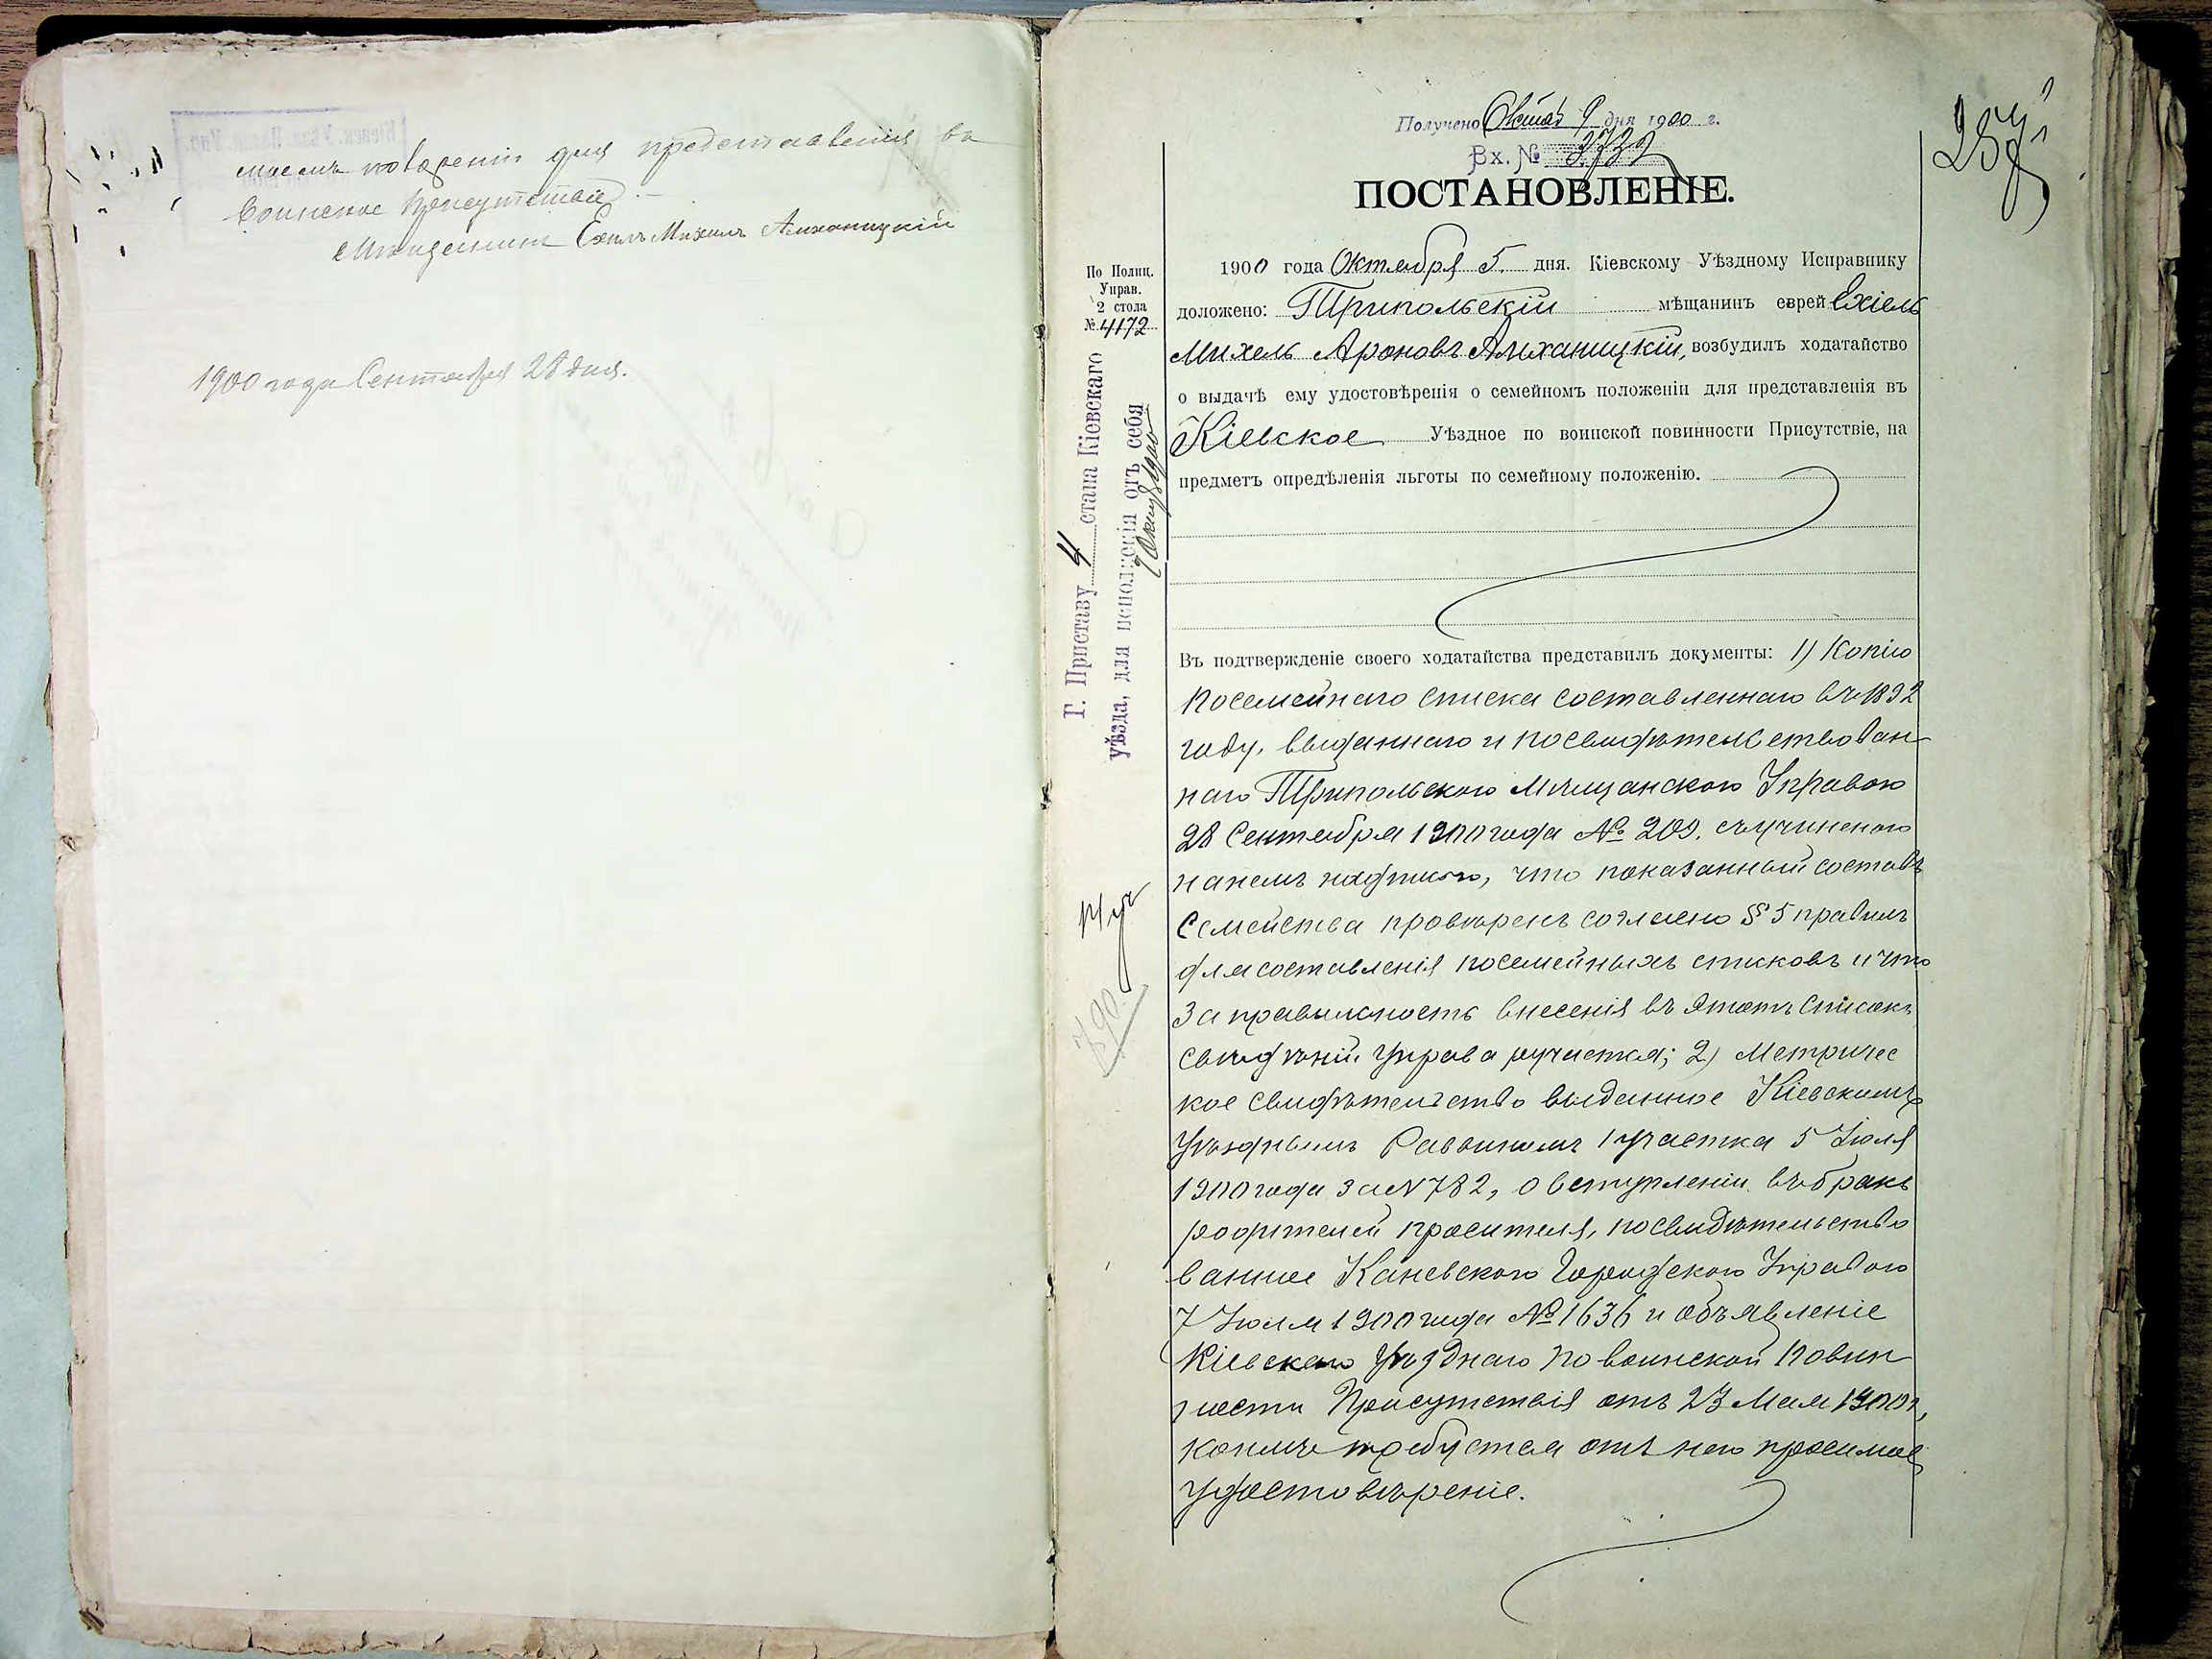 для представленія въ
Воинское Присутствіе. —
Мѣщанинъ Ехилъ Михилъ Алиханицкій
1900 года Сентября 28 дня.
Получено Октяб 9 дня 1900 г.
Вх. № 3732
257
ПОСТАНОВЛЕНІЕ.
По Полиц.
Управ.
2 стола
№ 4172
Г. Приставу 4 стана Кіевскаго
уѣзда, для исполненія отъ себя
1900 года Октября 5 дня. Кіевскому Уѣздному Исправнику
доложено: Трипольскій мѣщанинъ еврей Ехіель
Михель Ароновъ Алиханицкій, возбудилъ ходатайство
о выдачѣ ему удостовѣренія о семейномъ положеніи для представленія въ
Кіевское Уѣздное по воинской повинности Присутствіе, на
предметъ опредѣленія льготы по семейному положенію.
Въ подтвержденіе своего ходатайства представилъ документы: 1) Копію
посемейнаго списка составленнаго въ 1892
году, выданнаго и посвидѣтельствован
наго Трипольскою Мѣщанскою Управою
28 Сентября 1900 года № 209, съ учиненою
на немъ надписью, что показанный составъ
Семейства провѣренъ согласно § 5 правилъ
для составленія посемейныхъ списковъ и что
за правильность внесенія въ этотъ Списокъ
свѣдѣній Управа ручается; 2) Метричес
кое свидѣтельство выданное Кіевскимъ
Уѣзднымъ Раввиномъ 1 участка 5 Іюля
1900 года за № 782, о вступленіи въ бракъ
родителей просителя, посвидѣтельство
ванное Каневскою Городскою Управою
7 Іюля 1900 года № 1636 и объявленіе
Кіевскаго Уѣзднаго по воинской Повин
ности Присутствія отъ 23 Мая 1900 г,
коимъ требуется отъ него просимое
удостовѣреніе.